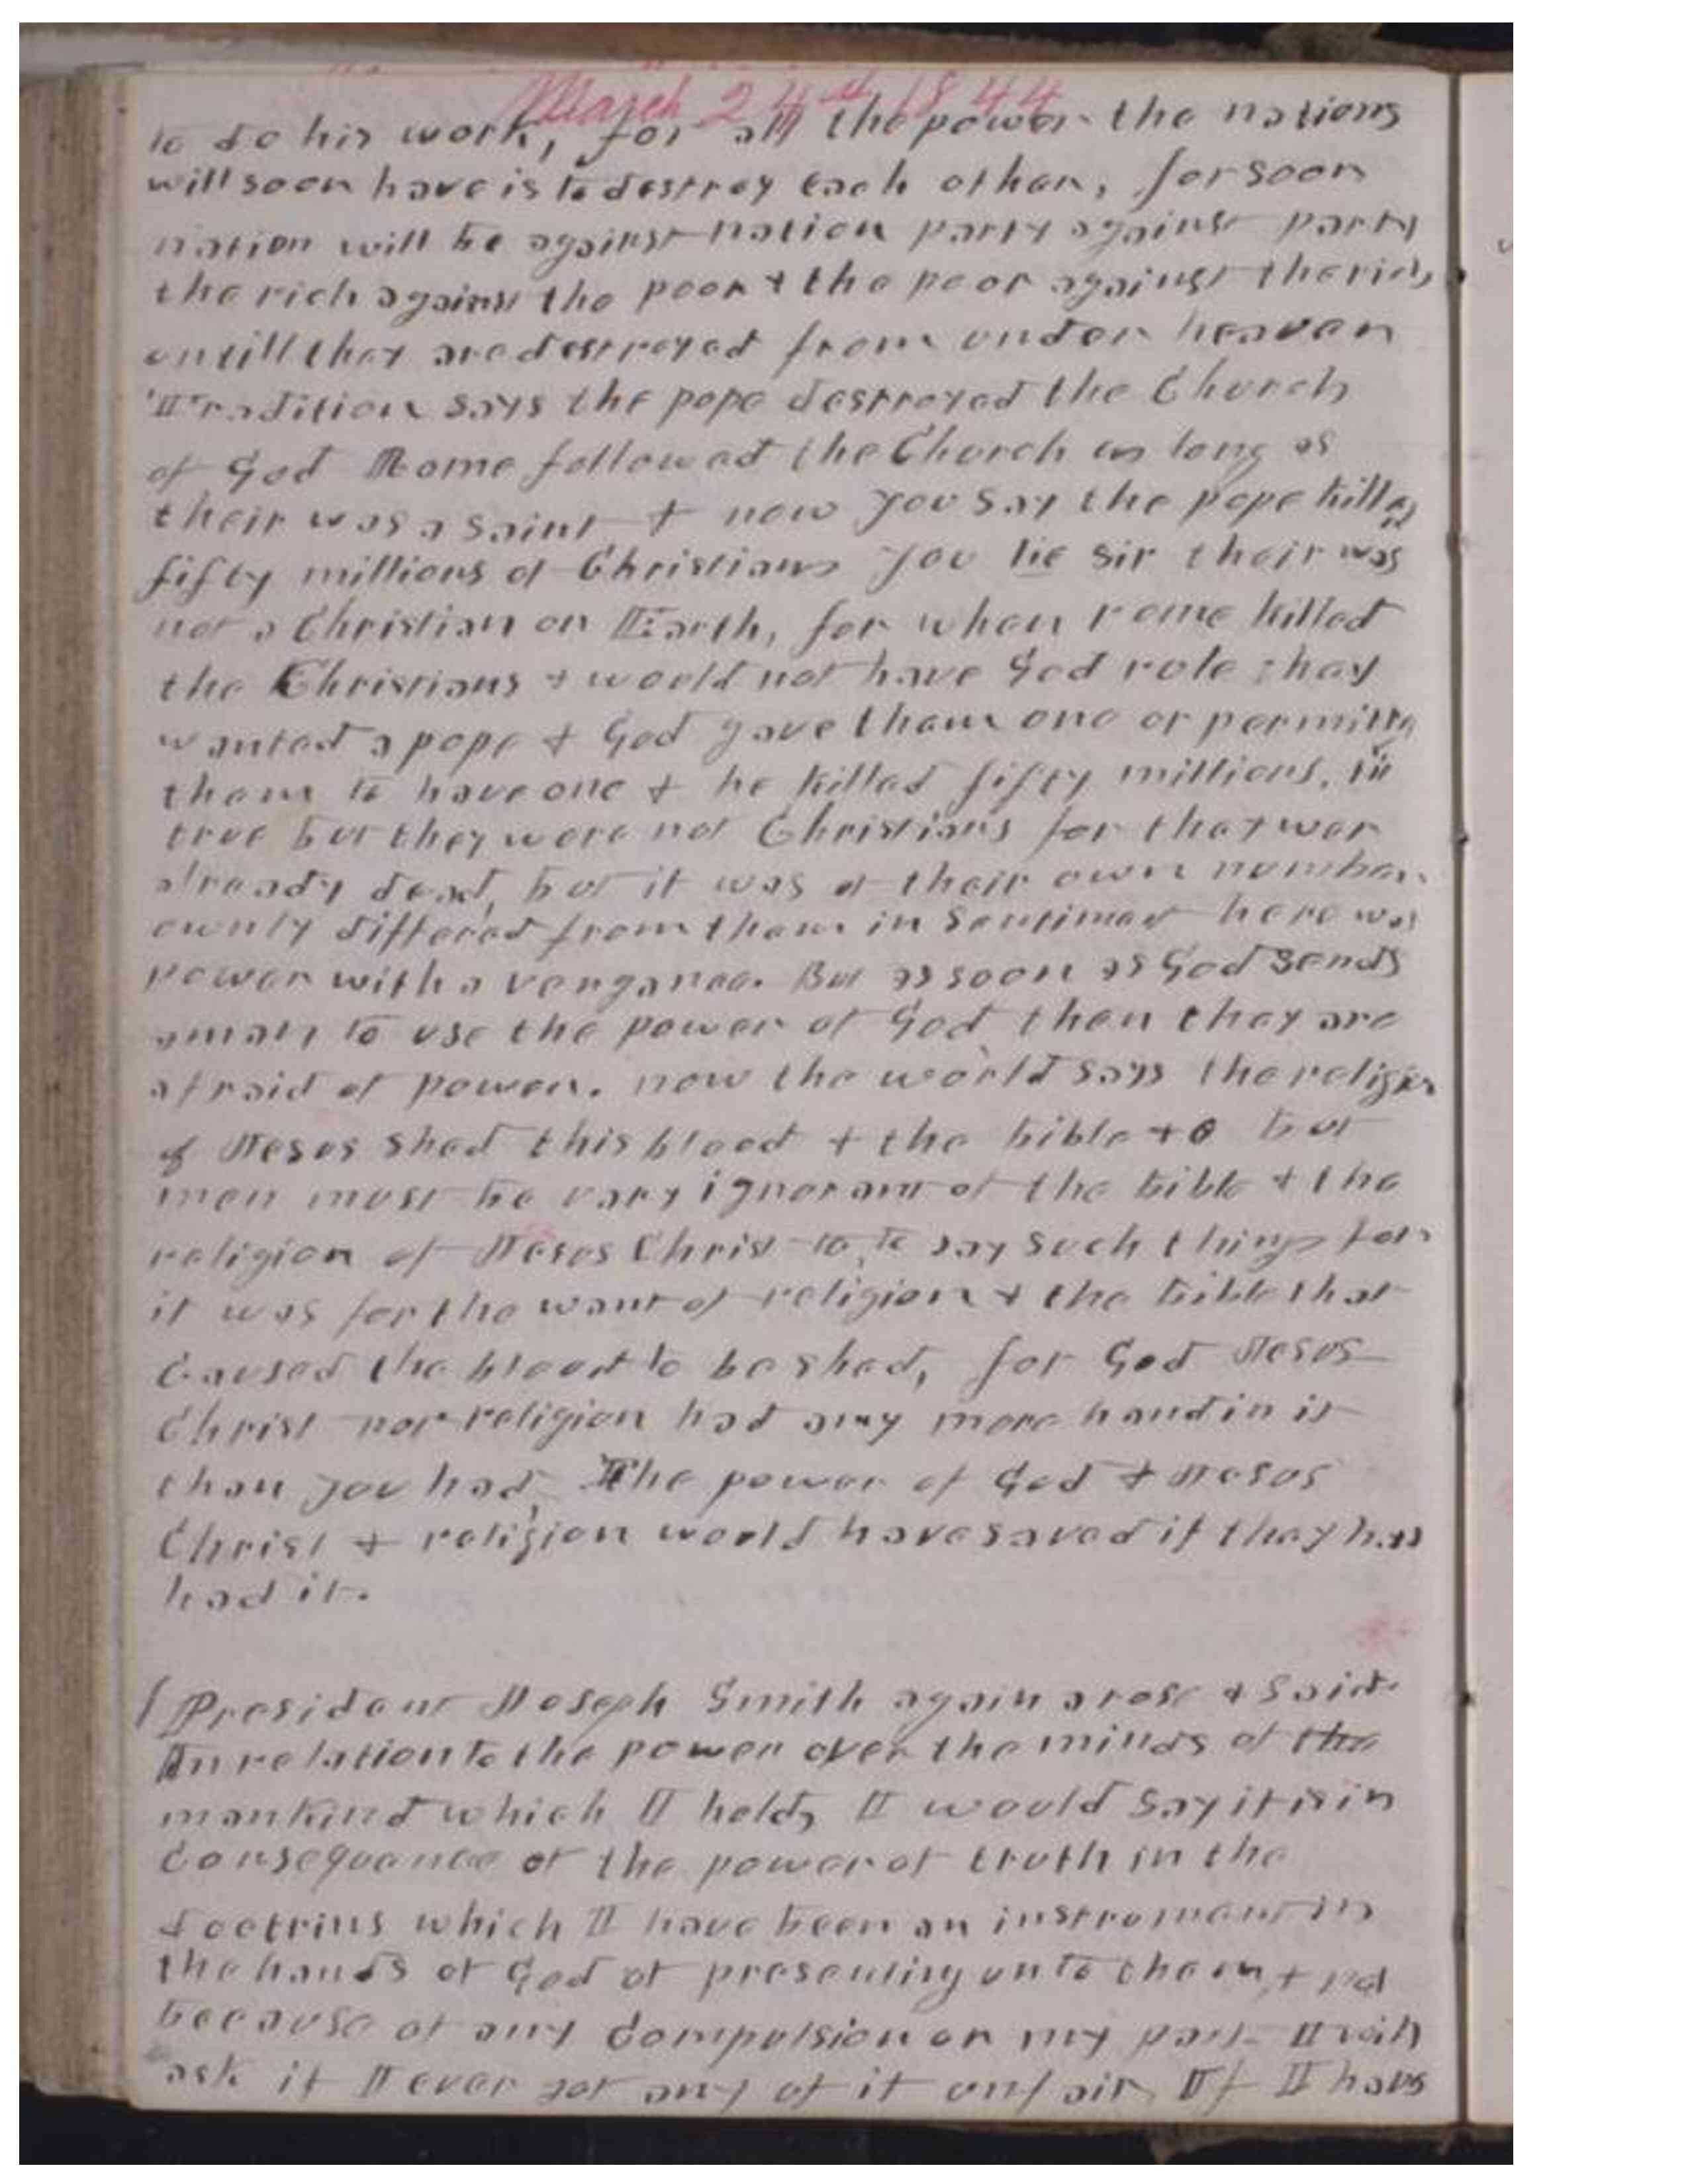 March 24th 1844
to do his work, for all the power the nations
will soon have is to destroy each other, for soon
nation will be against nation party against party
the rich against the poor & the poor against the rich
untill they are destroyed from under heaven
Tradition says the pope destroyed the Church
of God Rome followed the Church as long as
their was a saint & now you say the pope killed
fifty millions of Christians you lie sir their was
not a Christian on Earth, for when rome killed
the Christians & would not have God rule they
wanted a pope & God gave them one or permitted
them to have one & he killed fifty millions. tis
true but they were not Christians for they wer
already dead, but it was of their own number
ownly differed from them in sentiment here was
power with a vengance. But as soon as God sends
a man to use the power of God then they are
afraid of power. now the world says the religion
of Jesus shed this blood & the bible to but
men must be vary ignorant of the bible & the
religion of Jesus Christ to to say such things for
it was for the want of religion & the bible that
Caused the blood to be shed, for God Jesus
Christ nor religion had any more hand in it
than you had, The power of God & Jesus
Christ & religion would have saved if they had
had it.
President Joseph Smith again arose & said
In relation to the power over the minds of the
mankind which I hold, I would say it is in
Consequence of the power of truth in the
doctrins which I have been an instrument in
the hands of God of presenting unto them & not
because of any Compulsion on my part I will
ask if I ever got any of it unfair, If I have